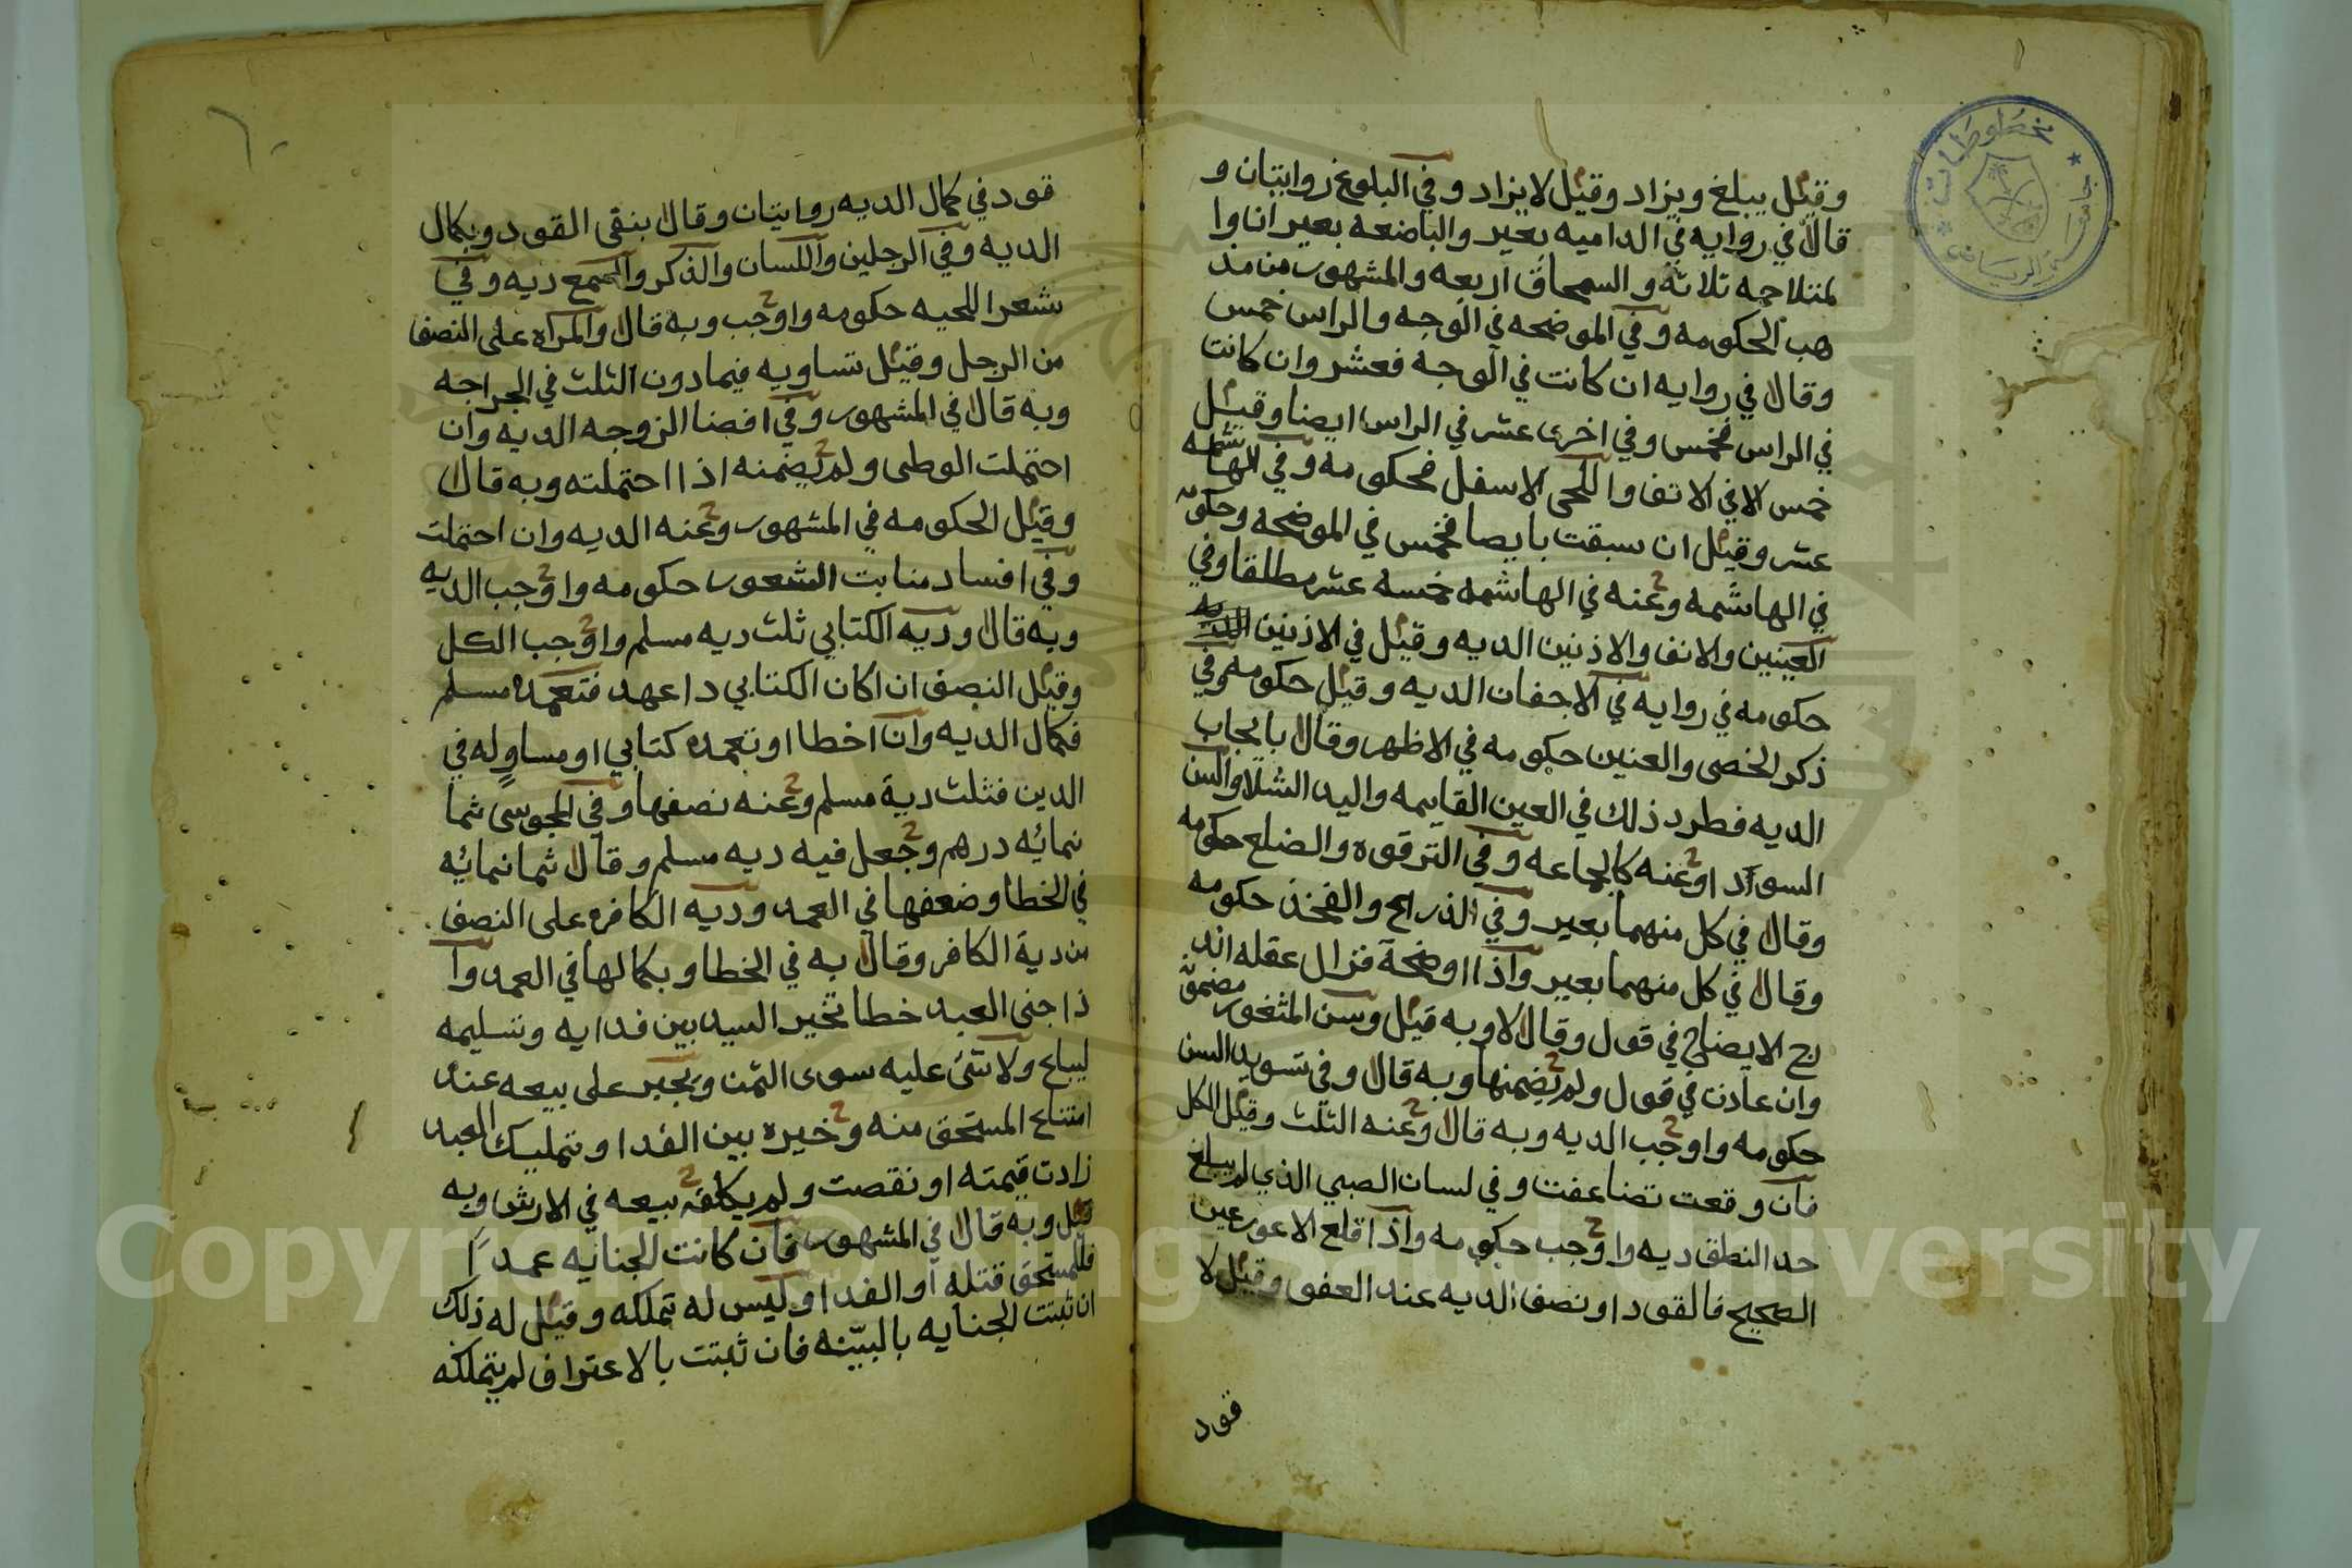 وقيل يبلغ ويزاد وقيل لا يزاد وفي البلوغ روايتان و
قال في روايه في الداميه بعير والباضعه بعيران وا
لمتلاحمه ثلاثه والسمحاق اربعه والمشهور من مذ
هب الحكومه وفي الموضحه في الوجه والراس خمس
وقال في روايه ان كانت في الوجه فعشر وان كانت
في الراس فخمس وفي اخرى عشر في الراس ايضا وقيل
خمس الا في الانف واللحى الاسفل فحكومه وفي الهاشمه
عشر وقيل ان سبقت بايضا فخمس في الموضحه وحكو
في الهاشمه وعنه في الهاشمه خمسه عشر مطلقا وفي
العينين والانف والاذنين الديه وقيل في الاذنين
حكومه في روايه في الاجفان الديه وقيل حكومه وفي
ذكر الخصى والعنين حكومه في الاظهر وقال بايجاب
الديه فطرد ذلك في العين القايمه واليد الشلا والسن
السوآد اوعنه كالجماعه وفي الترقوه والضلع حكومه
وقال في كل منهما بعير وفي الذراع والفخذ حكومه
وقال في كل منهما بعير واذا اوضحة فزال عقله اند
رج الايضاح في قول وقال لا وبه قيل وسن المثغور مضمو
وان عادت في قول ولم يضمنها وبه قال وفي تسويد السن
حكومه واوجب الديه وبه قال وعنه الثلث وقيل الكل
فان وقعت تضاعفت وفي لسان الصبي الذي لم يبلغ
حد النطق ديه واوجب حكومه واذا قلع الاعور عين
الصحيح فالقود او نصف الديه عند العفو وقيل لا
قود
قود في كمال الديه روايتان وقال بنفي القود وبكمال
الديه وفي الرجلين واللسان والذكر والسمع ديه وفي
شعر اللحيه حكومه واوجب وبه قال والمراه على النصف
من الرجل وقيل تساويه فيما دون الثلث في الجراحه
وبه قال في المشهور وفي افضا الزوجه الديه وان
احتملت الوطى ولم يضمنه اذا احتملته وبه قال
وقيل الحكومه في المشهور وعنه الديه وان احتملت
وفي افساد منابت الشعور حكومه واوجب الديه
وبه قال وديه الكتابي ثلث ديه مسلم واوجب الكل
وقيل النصف ان اكان الكتابي ذا عهد فتعمده مسلم
فكمال الديه وان اخطا او تعمده كتابي او مساوٍ له في
الدين فثلث دية مسلم وعنه نصفها وفي المجوسى ثما
نمائه درهم وجعل فيه ديه مسلم وقال ثمانمائه
في الخطا وضعفها في العمد وديه الكافره على النصف
من دية الكافر وقال به في الخطا وبكمالها في العمد وا
ذا جنى العبد خطا تخير السيد بين فدايه وتسليمه
ليباع ولا شئ عليه سوى الثمن ويجبر على بيعه عند
امتناع المستحق منه وخيره بين الفدا وتمليك العبد
زادت قيمته او نقصت ولم يكلفه بيعه في الارش وبه
قيل وبه قال في المشهور فان كانت الجنايه عمدًا
فللمستحق قتله او الفدا وليس له تملكه وقيل له ذلك
ان ثبتت الجنايه بالبيّنه فان ثبتت بالاعتراف لم يتملكه
جامعة الرياض
مخطوطات
Copyright © King Saud University